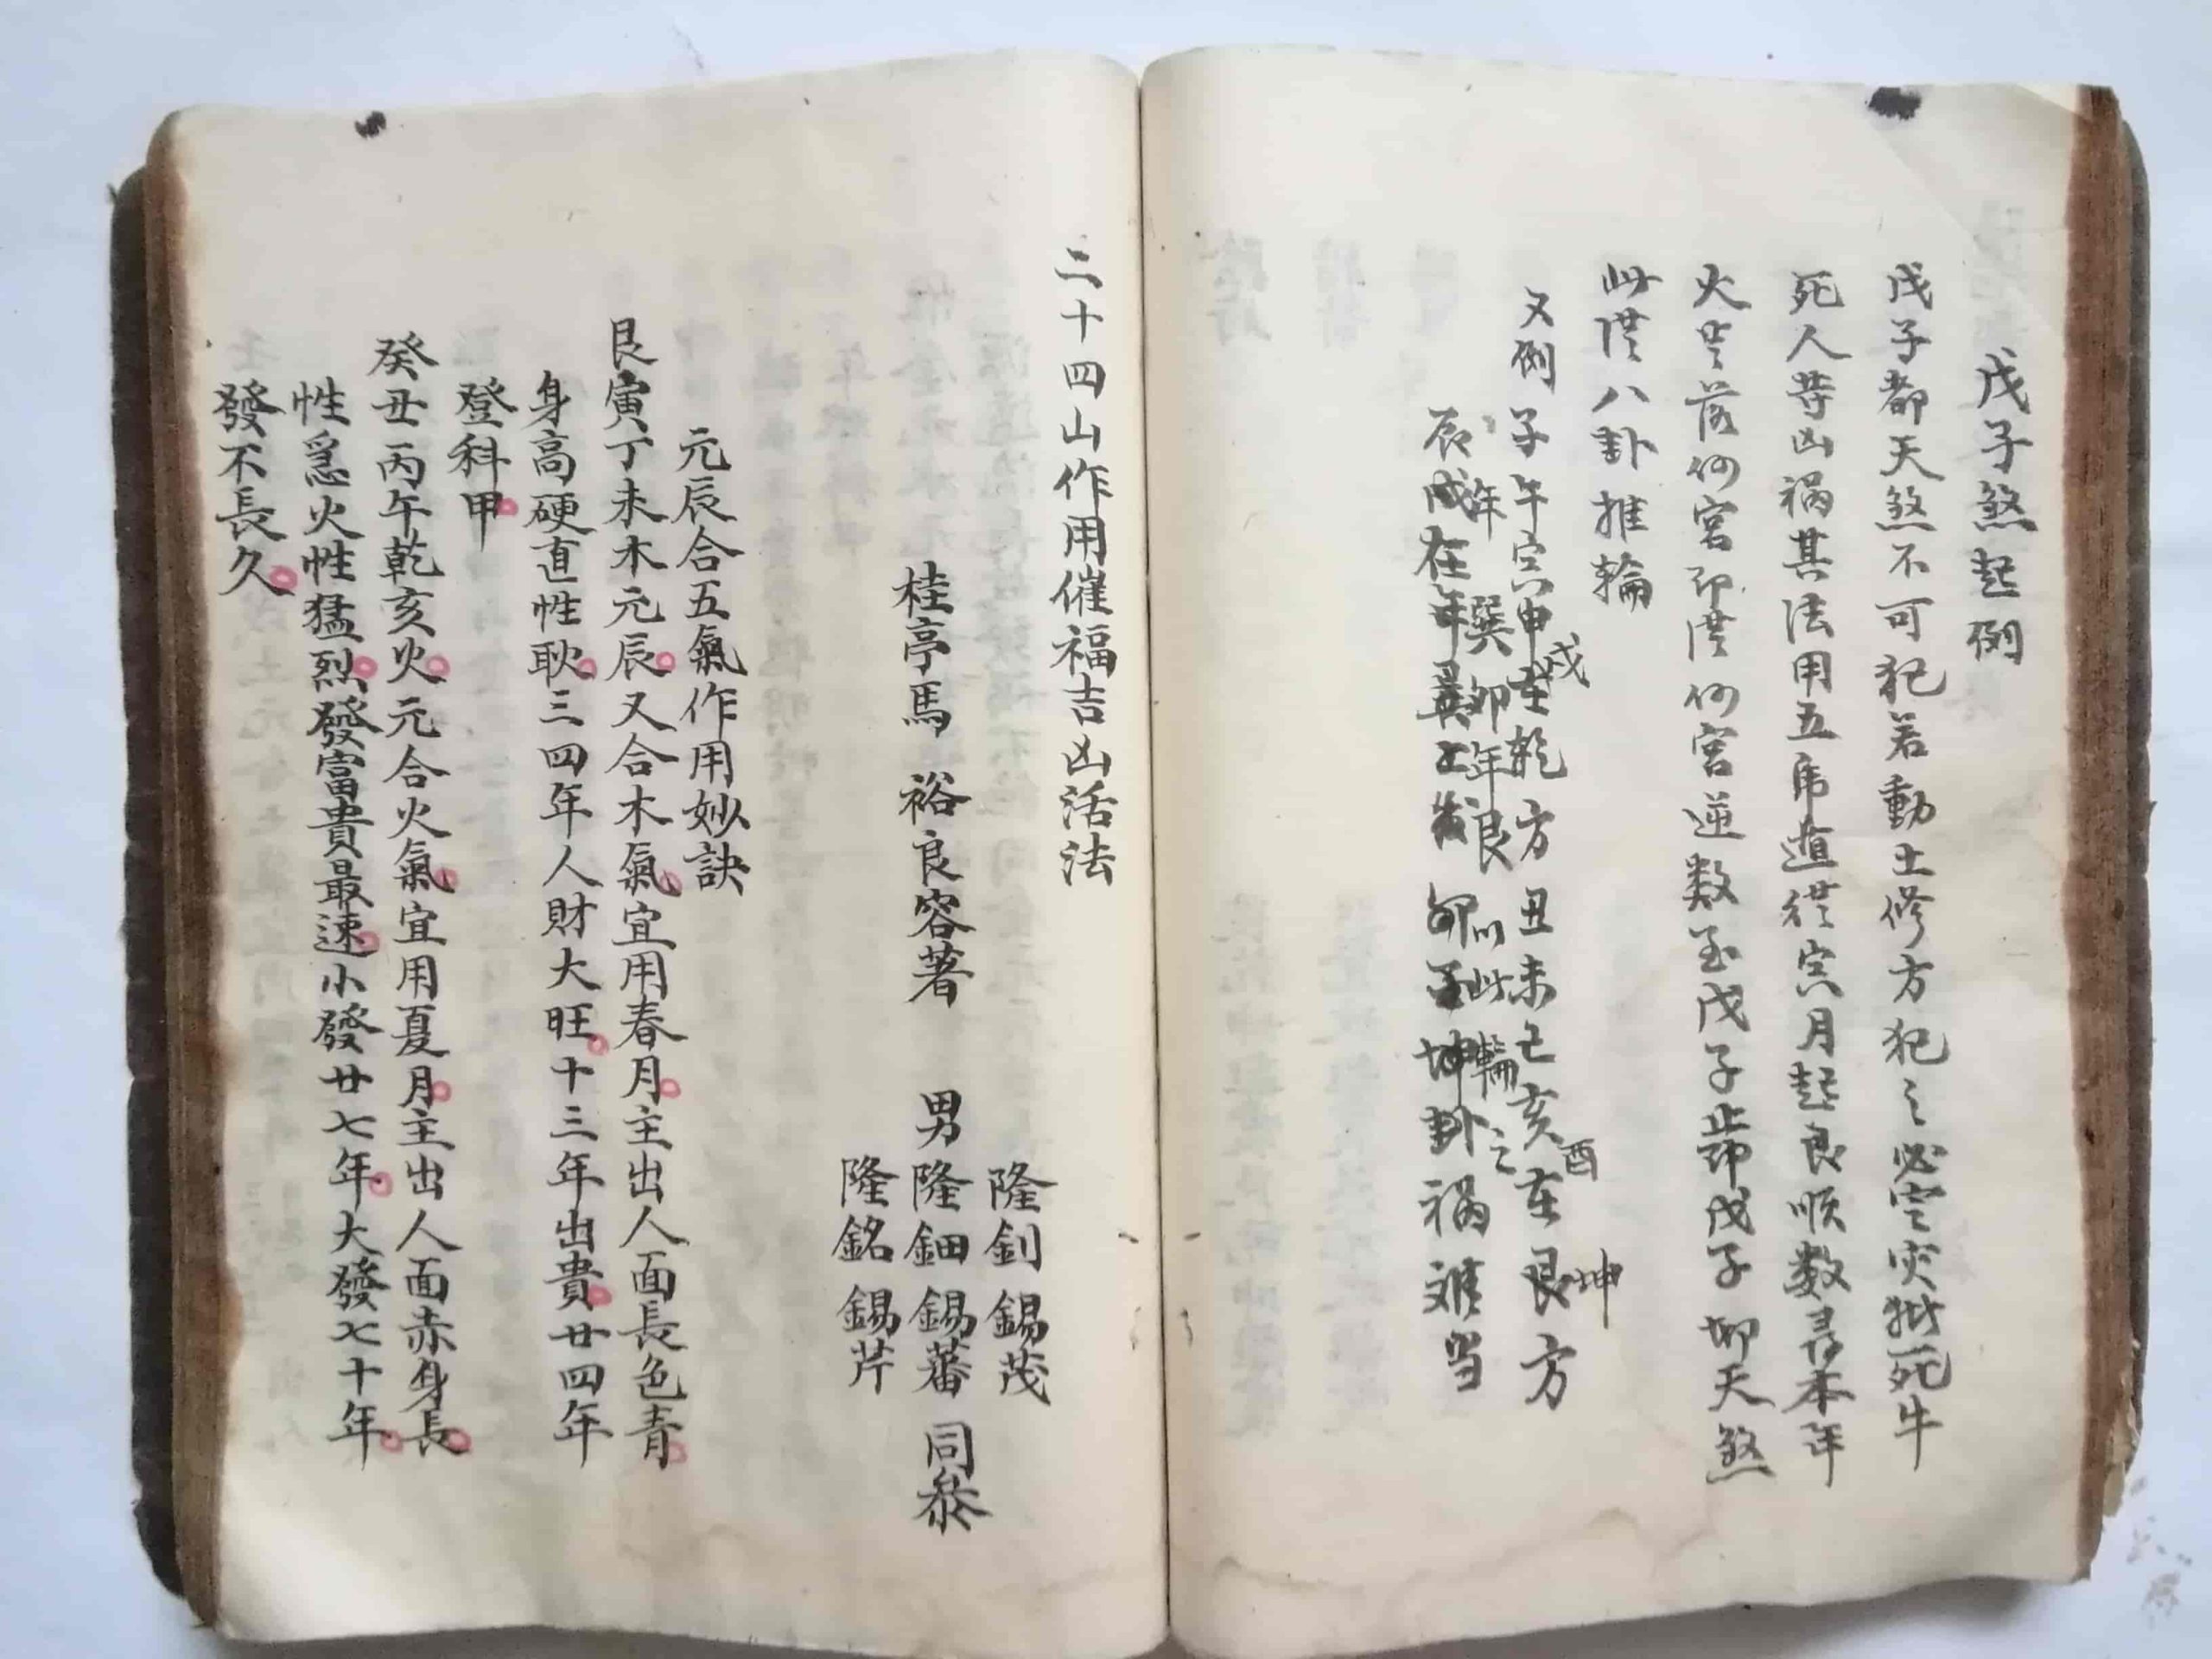 戊子煞起例
戊子都天煞不可犯若動土修方犯之必空灾批死牛
死人等凶禍其法用五虎遁從寅月起良順数尋本年
火星落何宮即從何宮逆数至戊子止即戊子都天煞
此從八卦推輪
又例子午寅申戌在乾方丑未巳亥酉在艮坤方
年巽卯年艮以此輪之
辰戌在年巽上卦禍难当
二十四山作用催福吉凶活法
桂亭馬裕良容著
男
隆釗錫茂
隆鈿錫蕃
隆銘錫芹
同叅
元辰合五氣作用妙訣
艮寅丁未木元辰又合木氣宜用春月主出人面長色青
身高硬直性耿三四年人財大旺十三年出貴廿四年
登科甲
癸丑丙午乾亥火元合火氣宜用夏月主出人面赤身長
性急火性猛烈發富貴最速小發廿七年大發七十年
發不長久